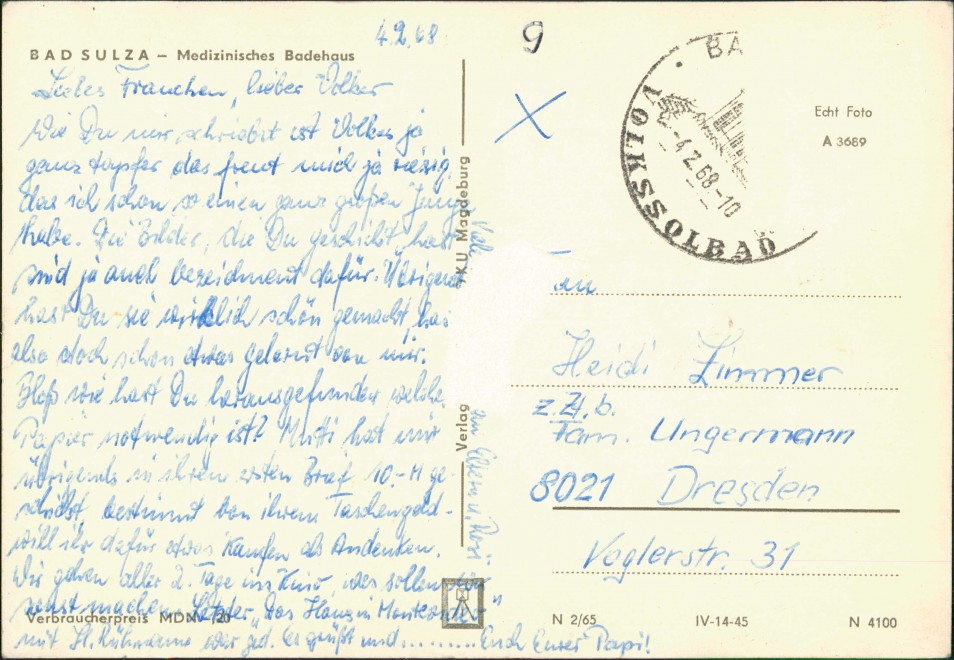 4.2.68
BAD SULZA – Medizinisches Badehaus
Liebes Frauchen, lieber Volker
Wie Du mir schriebst ist Volker ja
ganz tapfer das freut mich ja riesig,
das ich schon so einen ganz großen Jung
habe. Die Bilder, die Du geschickt hast
sind ja auch bezeichnent dafür. Übrigens
hast Du sie wirklich schön gemacht, has
also doch schon etwas gelernt von mir.
Bloß wie hast Du herausgefunden welche
Papier notwendig ist? Mutti hat mir
übrigends in ihrem ersten Brief 10.-M ge
schickt, bestimmt von ihrem Taschengeld -
will ihr dafür etwas kaufen als Andenken.
Wir gehen aller 2. Tage ins Kino, was sollen wir
sonst machen. "Das Haus in Montevideo"
mit H. Rühmann war
Es grüßt und .......... Euch Euer Papi!
Viele
an Eltern u.
Verbraucherpreis MDN 20
Verlag
TKU Magdeburg
9
X
BA
VOLKSSOLBAD
-4.2.68-10
Echt Foto
A 3689
Heidi Zimmer
z.Zt. b.
Fam. Ungermann
8021 Dresden
Voglerstr. 31
N 2/65 IV-14-45 N 4100